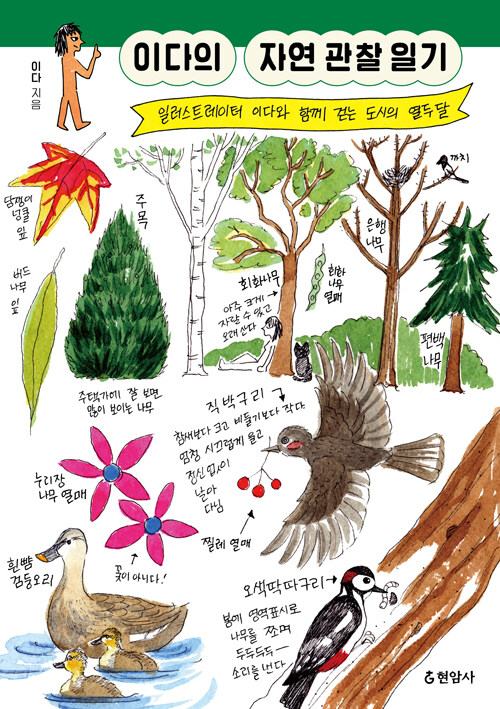 이다의 자연 관찰 일기
이다 지음
일러스트레이터 이다와 함께 걷는 도시의 열두 달
담쟁이
넝쿨
잎
주목
까치
은행
나무
회화나무
아주 크게
자랄 수 있고
오래 산다
회화
나무
열매
버드
나무
잎
편백
나무
주택가에 잘 보면
많이 보이는 나무
직박구리
참새보다 크고 비둘기보다 작다.
엄청 시끄럽게 울고
정신없이
날아
다님
누리장
나무 열매
찔레 열매
꽃이 아니다!
흰뺨
검둥오리
오색딱따구리
봄에 영역표시로
나무를 쪼며
두두두두—
소리를 낸다
현암사